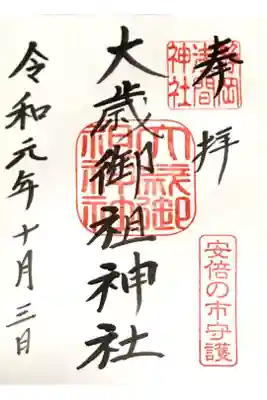 奉拝
静岡浅間神社
大歳御祖神社
大歳御祖神社
安倍の市守護
令和元年十月三日